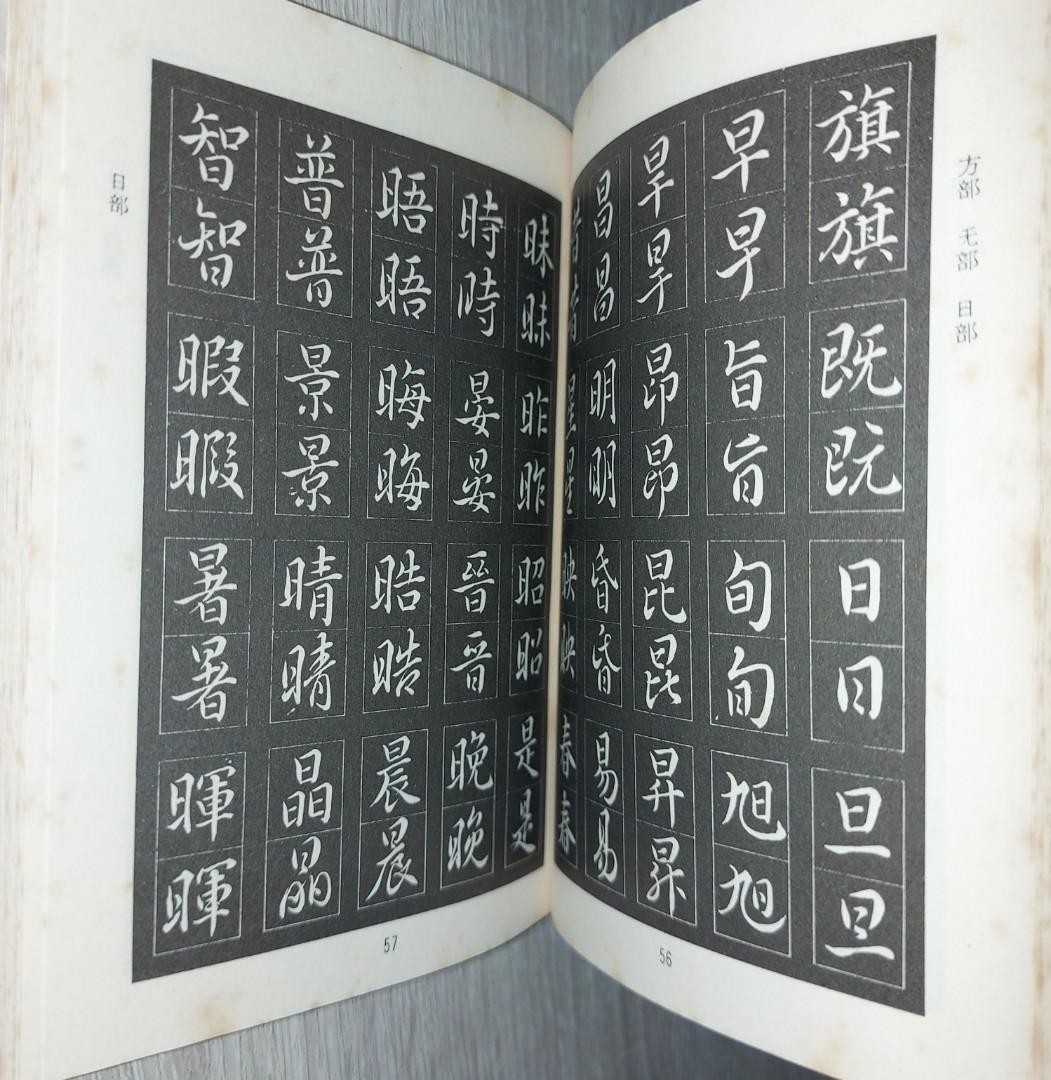 方部　无部　日部
旗旗既既日日旦旦
早早旨旨旬旬旭旭
旱旱昂昂昆昆昇昇
昌昌明明昏昏易易
星星映映春春
56
昧昧昨昨昭昭是是
時時晏晏晉晋晩晩
晤晤晦晦晧晧晨晨
普普景景晴晴晶晶
智智暇暇暑暑暉暉
日部
57